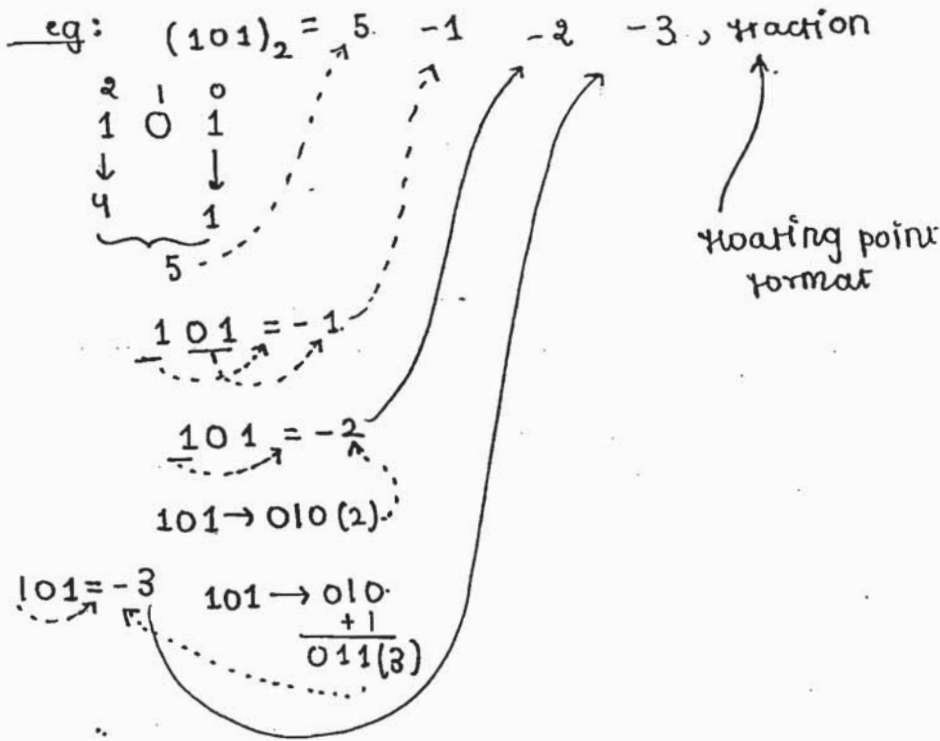 eg: (101)₂ = 5 -1 -2 -3, fraction
2 1 0
1 0 1
4 1
5
floating point
format
1 0 1 = -1
1 0 1 = -2
101 → 010 (2)
101 = -3
101 → 010
+1
011 (3)